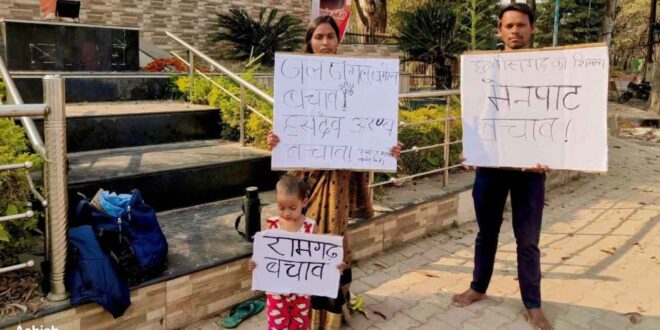 जल जंगल जमीन
बचाव!
हसदेव अरण्य
बचाव!
छत्तीसगढ़ की शिमला
मैनपाट
बचाव!
रामगढ़
बचाव